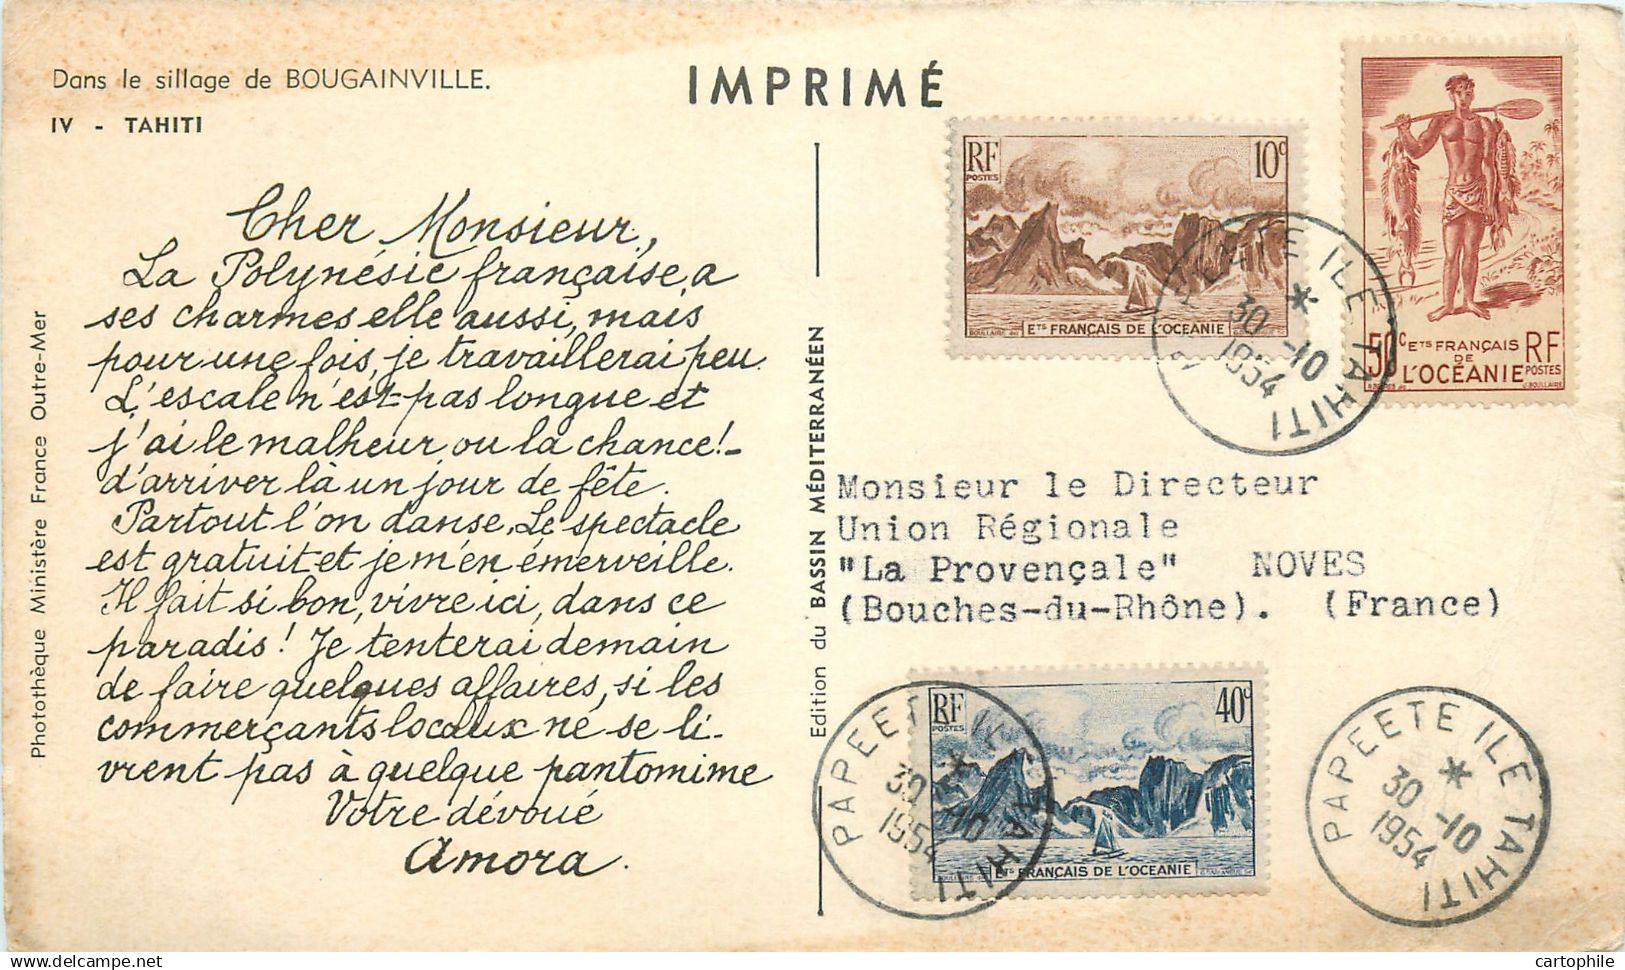 Dans le sillage de BOUGAINVILLE.
IV - TAHITI
IMPRIMÉ
Cher Monsieur,
La Polynésie française, a
ses charmes elle aussi, mais
pour une fois, je travaillerai peu.
L'escale n'est pas longue et
j'ai le malheur ou la chance!-
d'arriver là un jour de fête.
Partout l'on danse. Le spectacle
est gratuit et je m'en émerveille.
Il fait si bon, vivre ici, dans ce
paradis! Je tenterai demain
de faire quelques affaires, si les
commerçants locaux ne se li-
vrent pas à quelque pantomime
Votre dévoué
Amora.
Photothèque Ministère France Outre-Mer
Edition du BASSIN MÉDITERRANÉEN
RF
POSTES
10c
ETS FRANÇAIS DE L'OCÉANIE
50c ETS FRANÇAIS
DE
L'OCÉANIE
RF
POSTES
PAPEETE ILE TAHITI
30-10
1954
Monsieur le Directeur
Union Régionale
"La Provençale" NOVES
(Bouches-du-Rhône). (France)
RF
POSTES
40c
ETS FRANÇAIS DE L'OCEANIE
PAPEETE ILE TAHITI
30-10
1954
PAPEETE ILE TAHITI
30-10
1954
cartophile